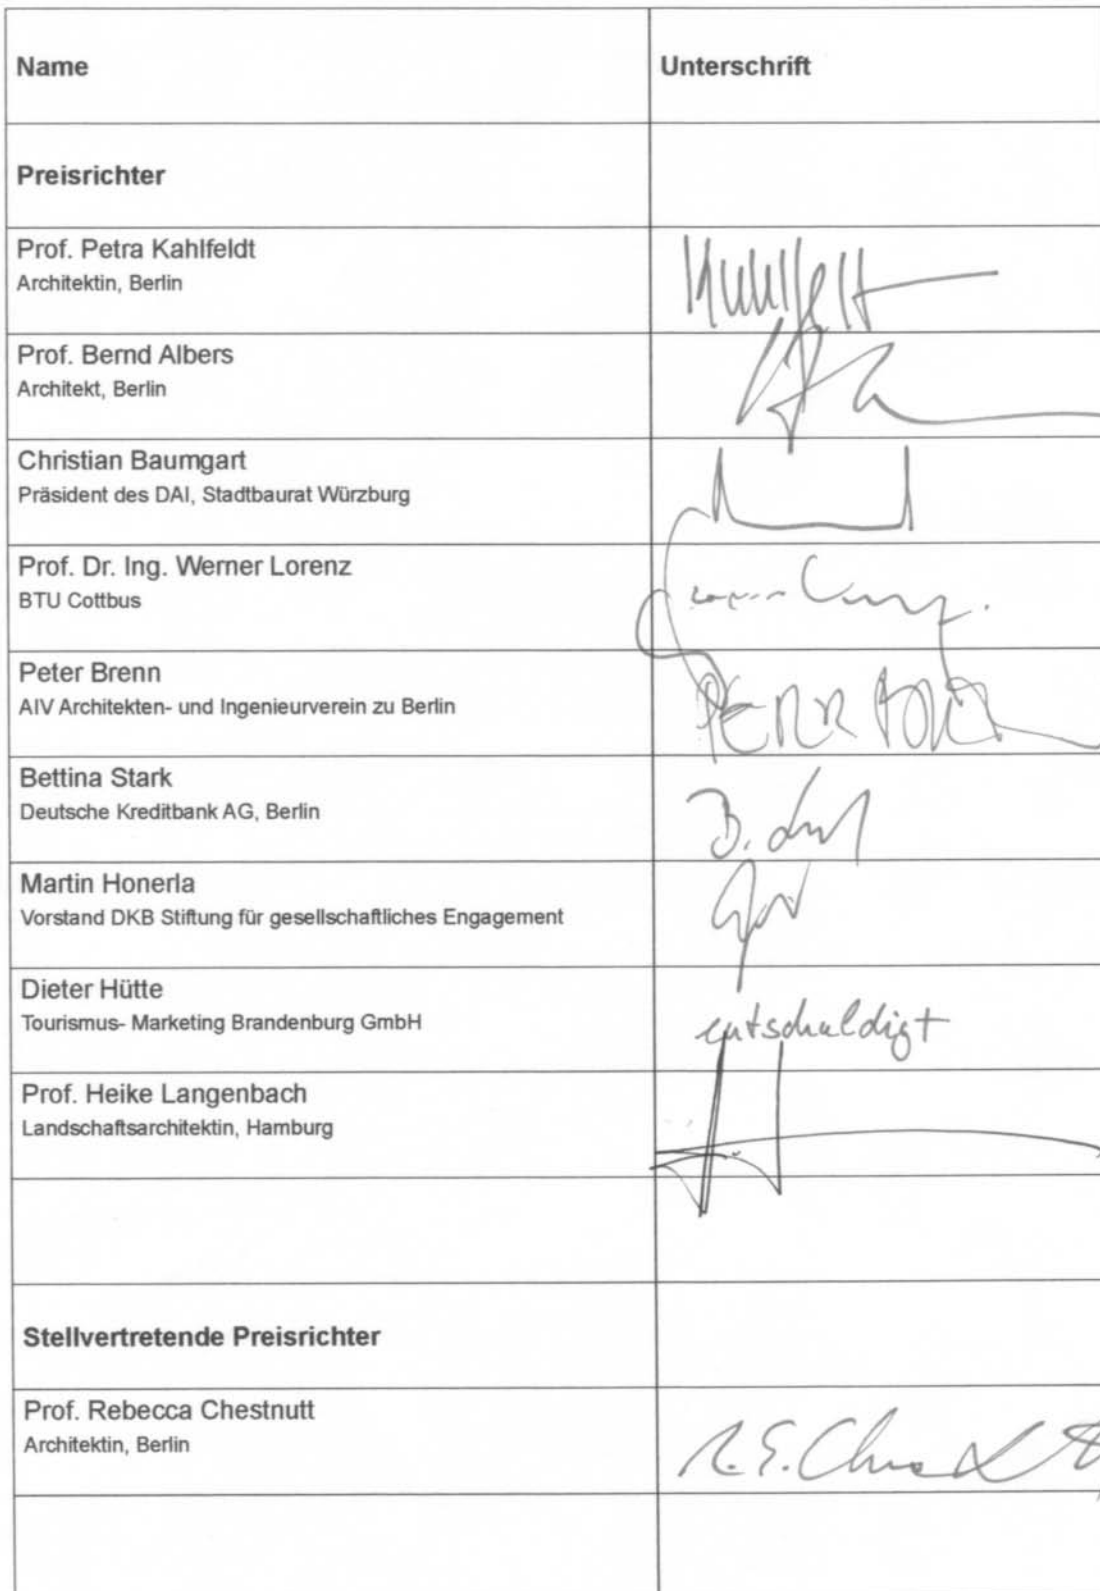 Name
Unterschrift
Preisrichter
Prof. Petra Kahlfeldt
Architektin, Berlin
Prof. Bernd Albers
Architekt, Berlin
Christian Baumgart
Präsident des DAI, Stadtbaurat Würzburg
Prof. Dr. Ing. Werner Lorenz
BTU Cottbus
Peter Brenn
AIV Architekten- und Ingenieurverein zu Berlin
Bettina Stark
Deutsche Kreditbank AG, Berlin
Martin Honerla
Vorstand DKB Stiftung für gesellschaftliches Engagement
Dieter Hütte
Tourismus- Marketing Brandenburg GmbH
entschuldigt
Prof. Heike Langenbach
Landschaftsarchitektin, Hamburg
Stellvertretende Preisrichter
Prof. Rebecca Chestnutt
Architektin, Berlin